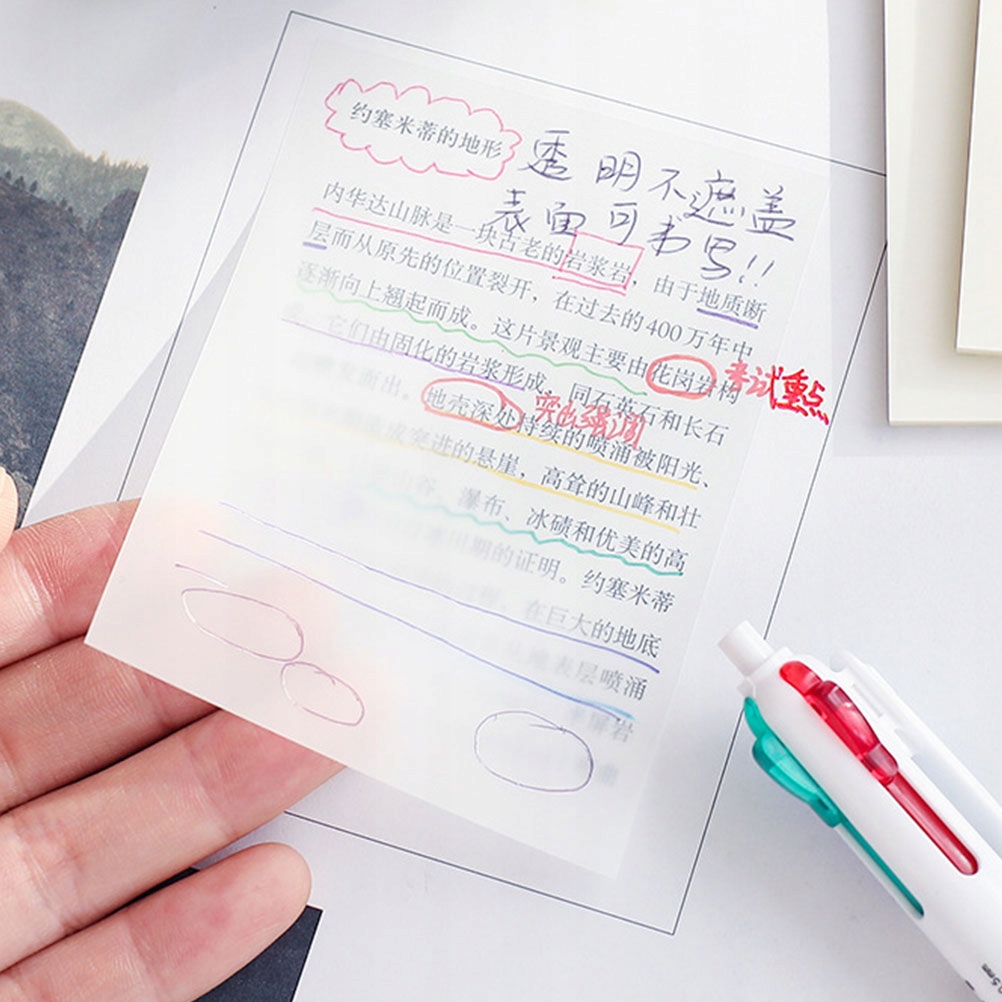 约塞米蒂的地形
透明不遮盖
表面可书写!!
内华达山脉是一块古老的岩浆岩，由于地质断
层而从原先的位置裂开，在过去的400万年中
逐渐向上翘起而成。这片景观主要由花岗岩构
考试重点
它们由固化的岩浆形成，同石英石和长石
而出。地壳深处持续的喷涌被阳光、
突出强调
突进的悬崖，高耸的山峰和壮
瀑布、冰碛和优美的高
期的证明。约塞米蒂
在巨大的地底
地表层喷涌
岩